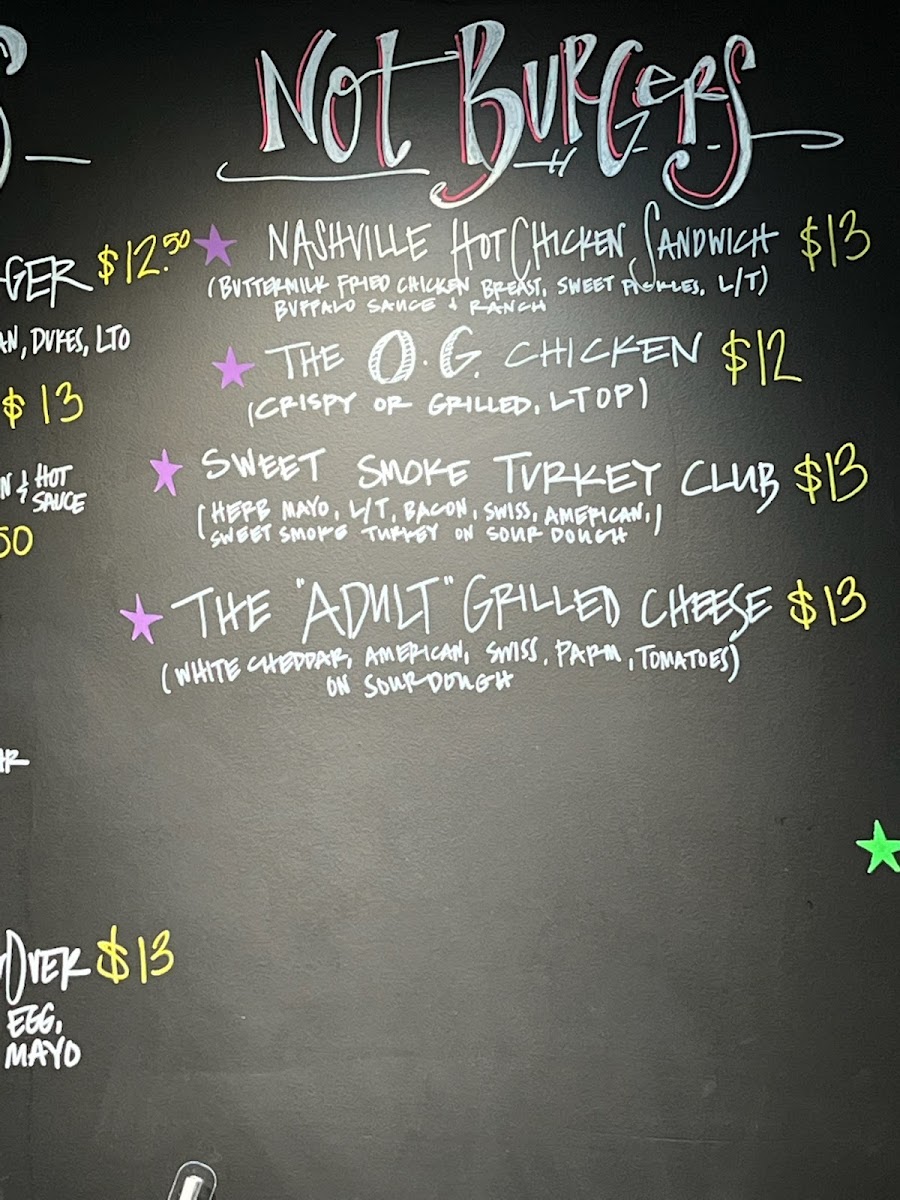 GER $12.50
AN, DUKES, LTO
$13
N & HOT
SAUCE
50
AR
OVER $13
EGG,
MAYO
NOT BURGERS
NASHVILLE HOT CHICKEN SANDWICH $13
(BUTTERMILK FRIED CHICKEN BREAST, SWEET PICKLES, L/T)
BUFFALO SAUCE & RANCH
THE O.G. CHICKEN $12
(CRISPY OR GRILLED, LTOP)
SWEET SMOKE TURKEY CLUB $13
(HERB MAYO, L/T, BACON, SWISS, AMERICAN,)
SWEET SMOKE TURKEY ON SOUR DOUGH
THE "ADULT" GRILLED CHEESE $13
(WHITE CHEDDAR, AMERICAN, SWISS, PARM, TOMATOES)
ON SOURDOUGH